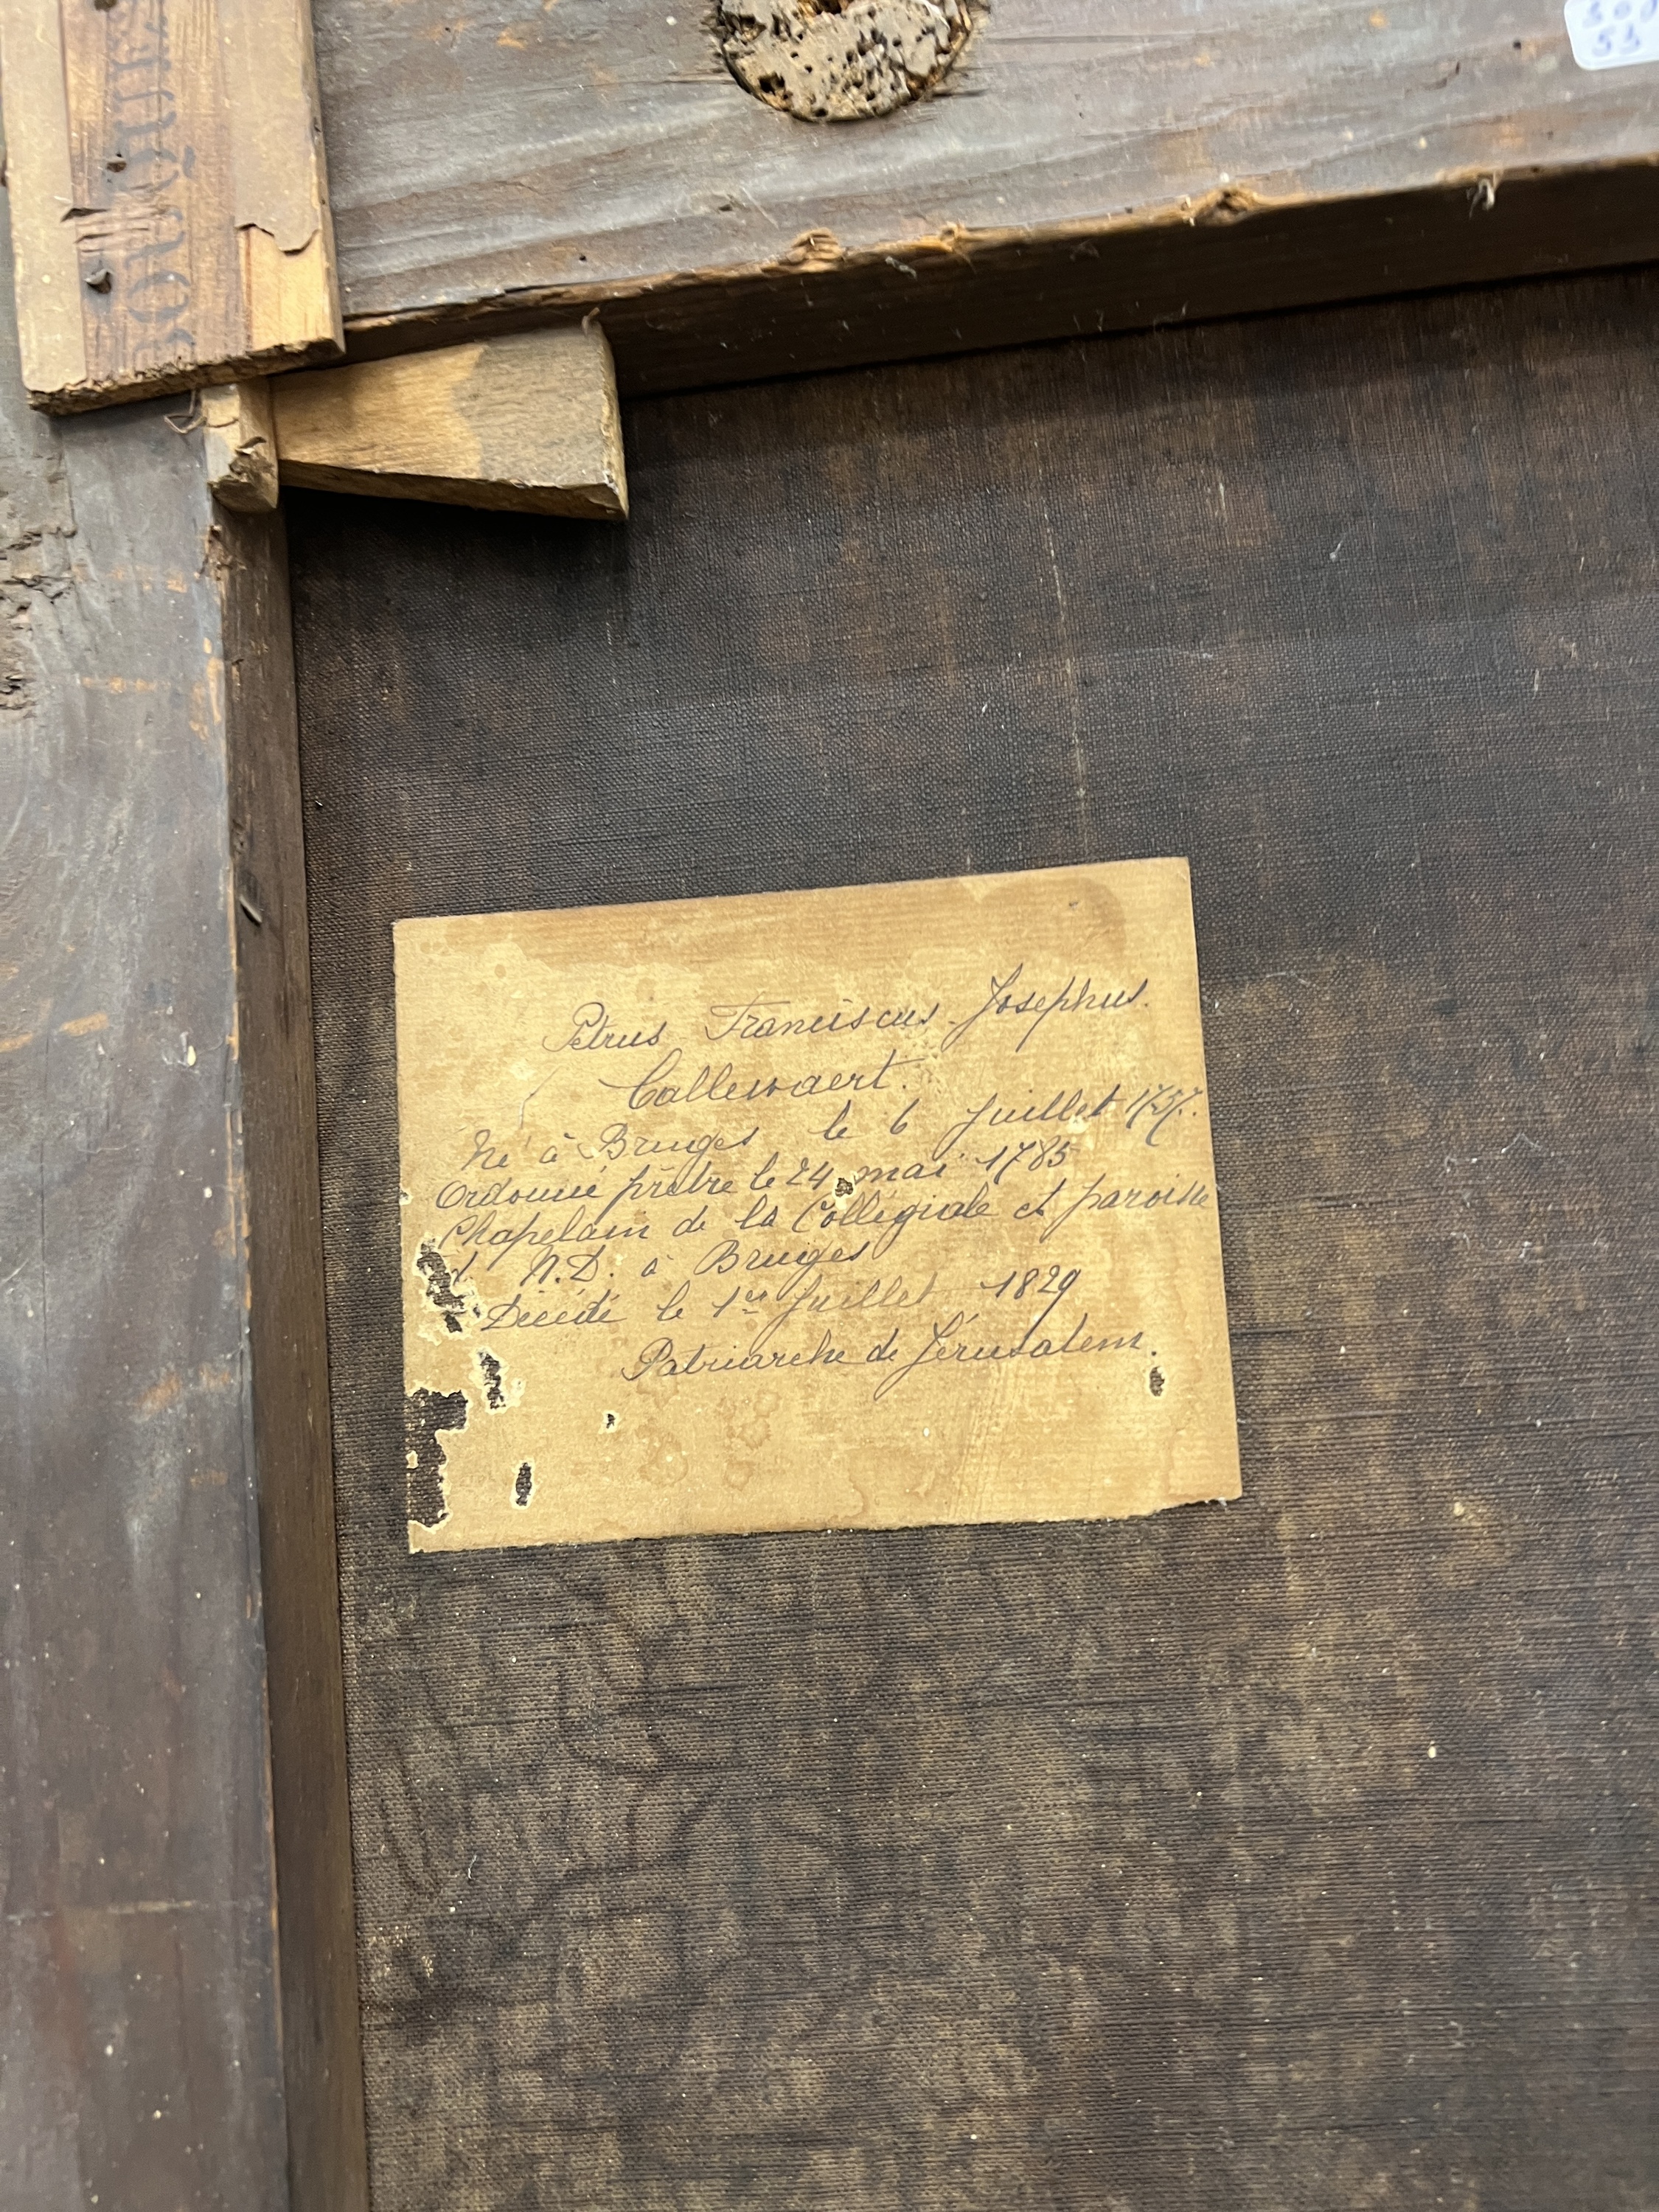 Petrus Franciscus Josephus.
Callewaert.
Né à Bruges le 6 Juillet 1757.
Ordonné prêtre le 24 mai 1785
Chapelain de la Collégiale et paroisse
d N.D. à Bruges
Décédé le 1er Juillet 1829
Patriarche de Jérusalem.